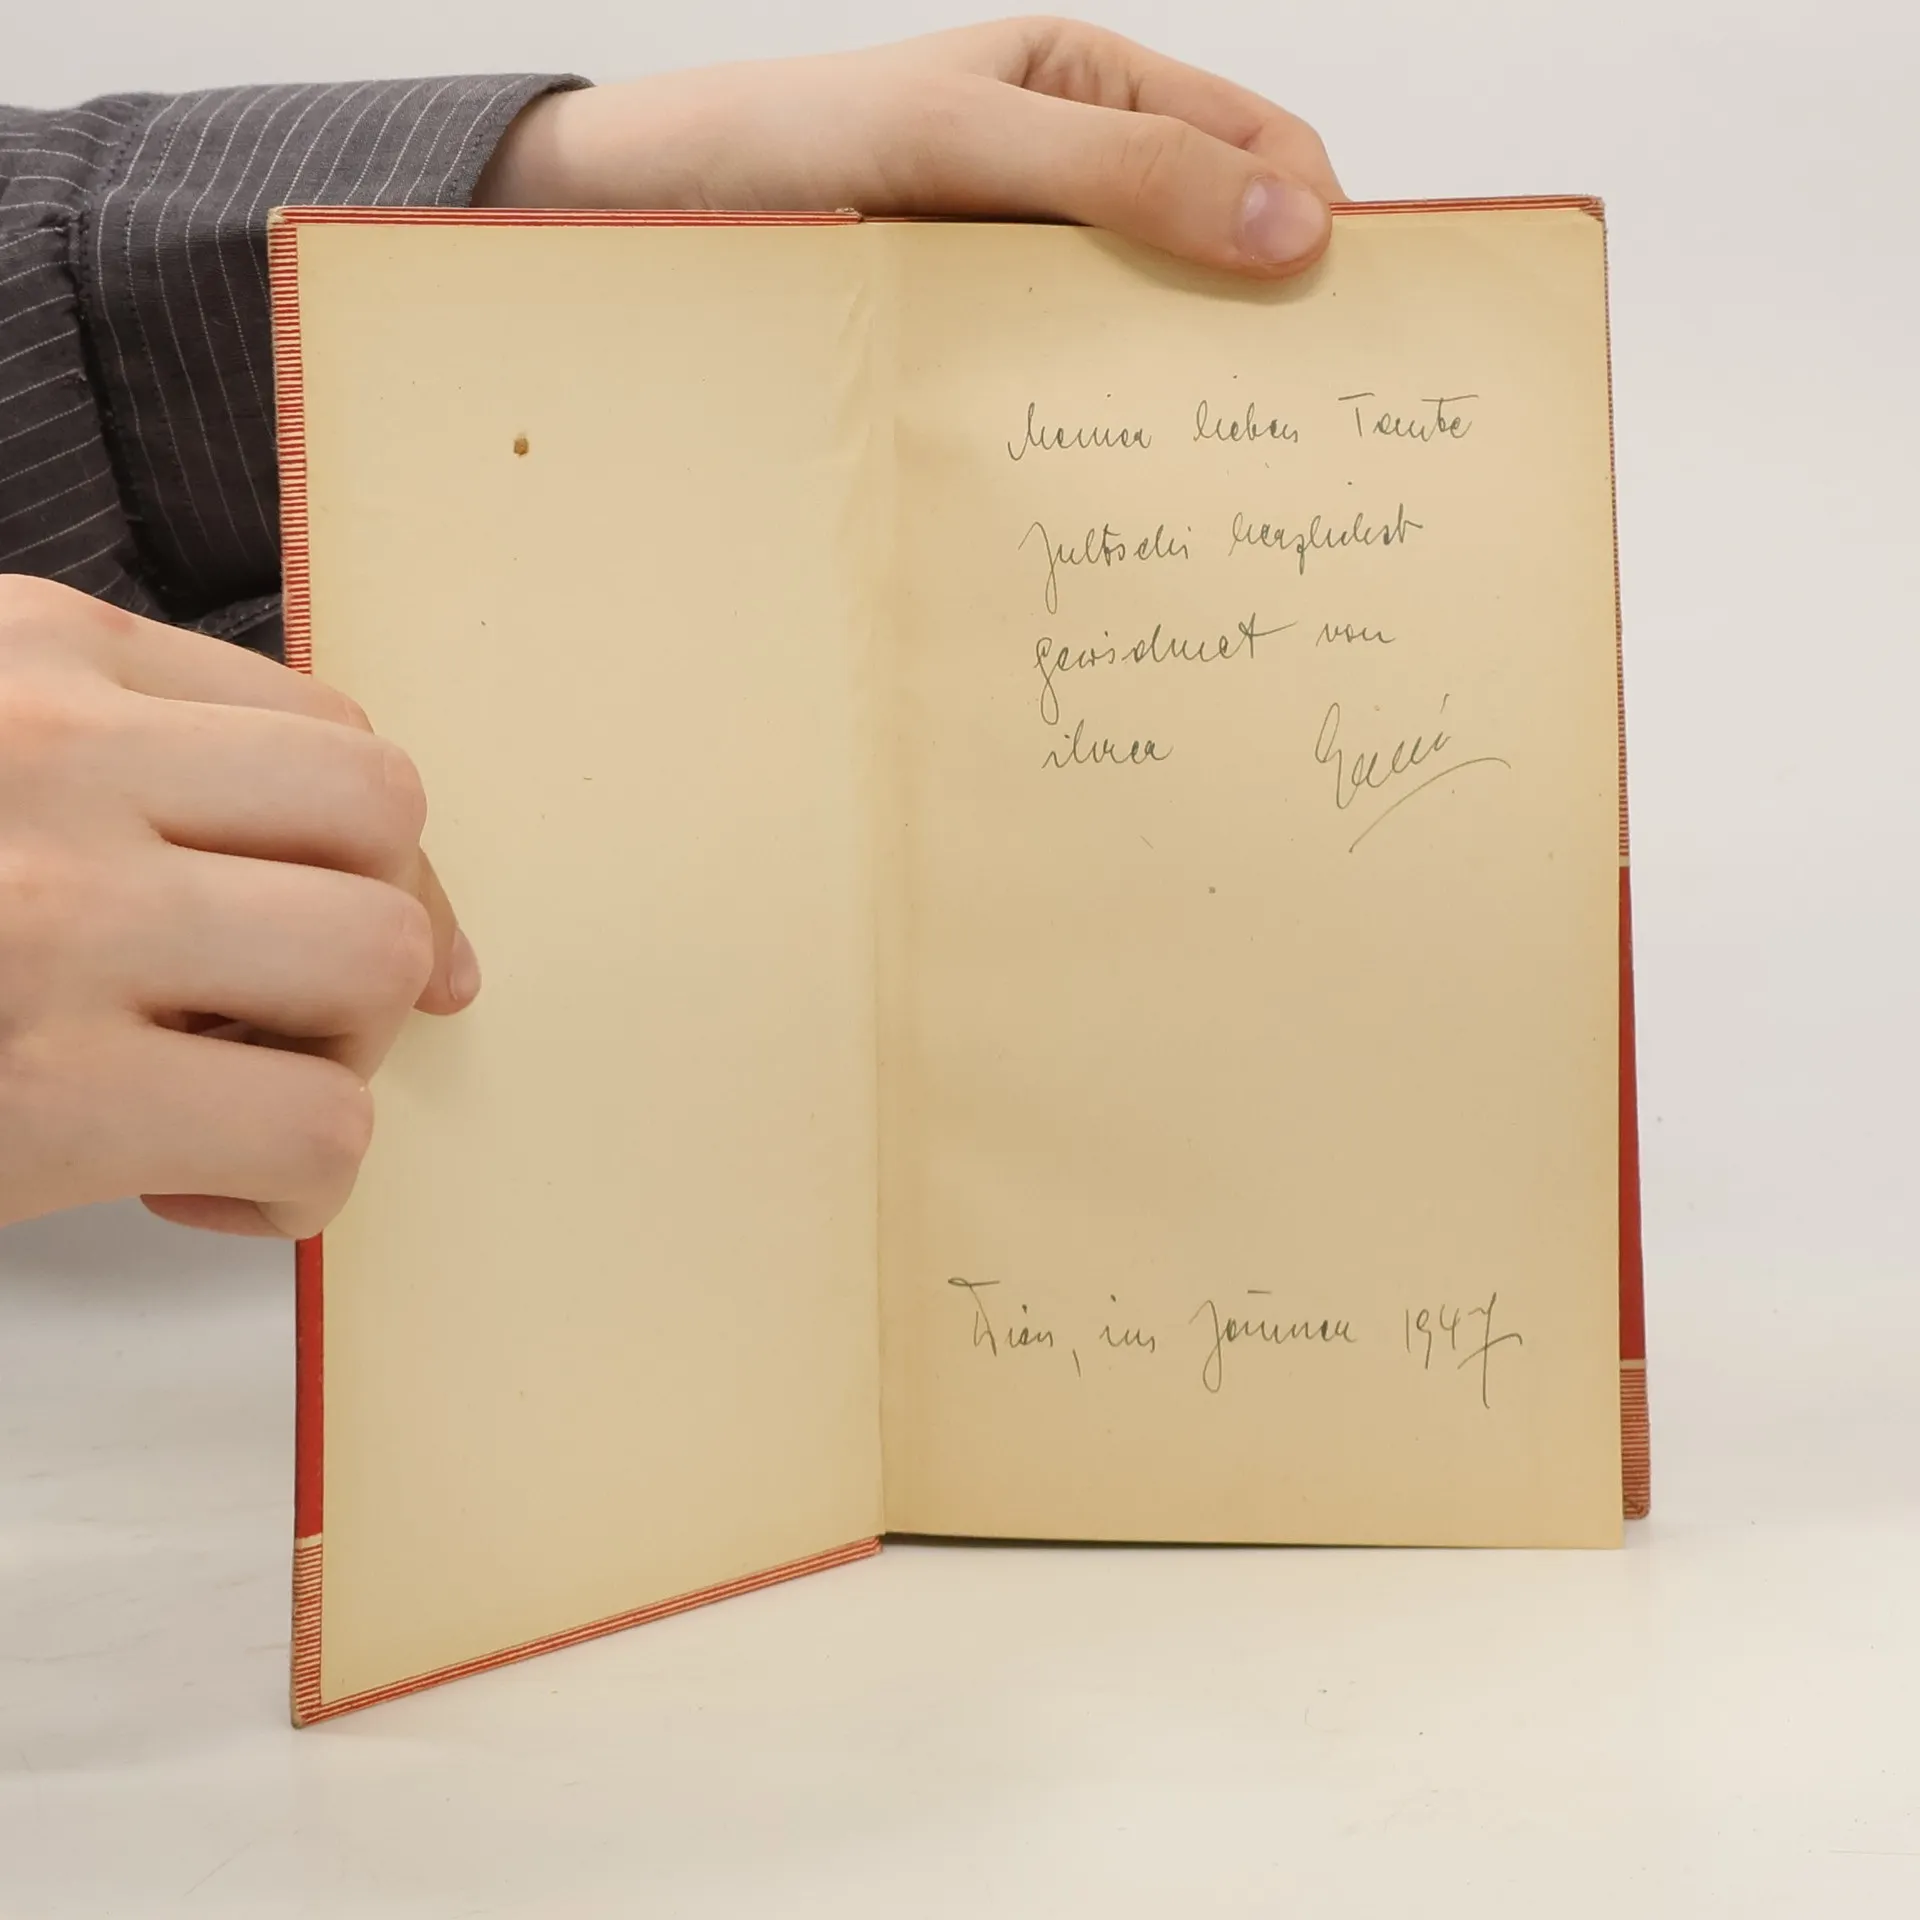 Meiner lieben Tante
Jultschi herzlichst
gewidmet von
ihrer
Wien, im Jänner 1947